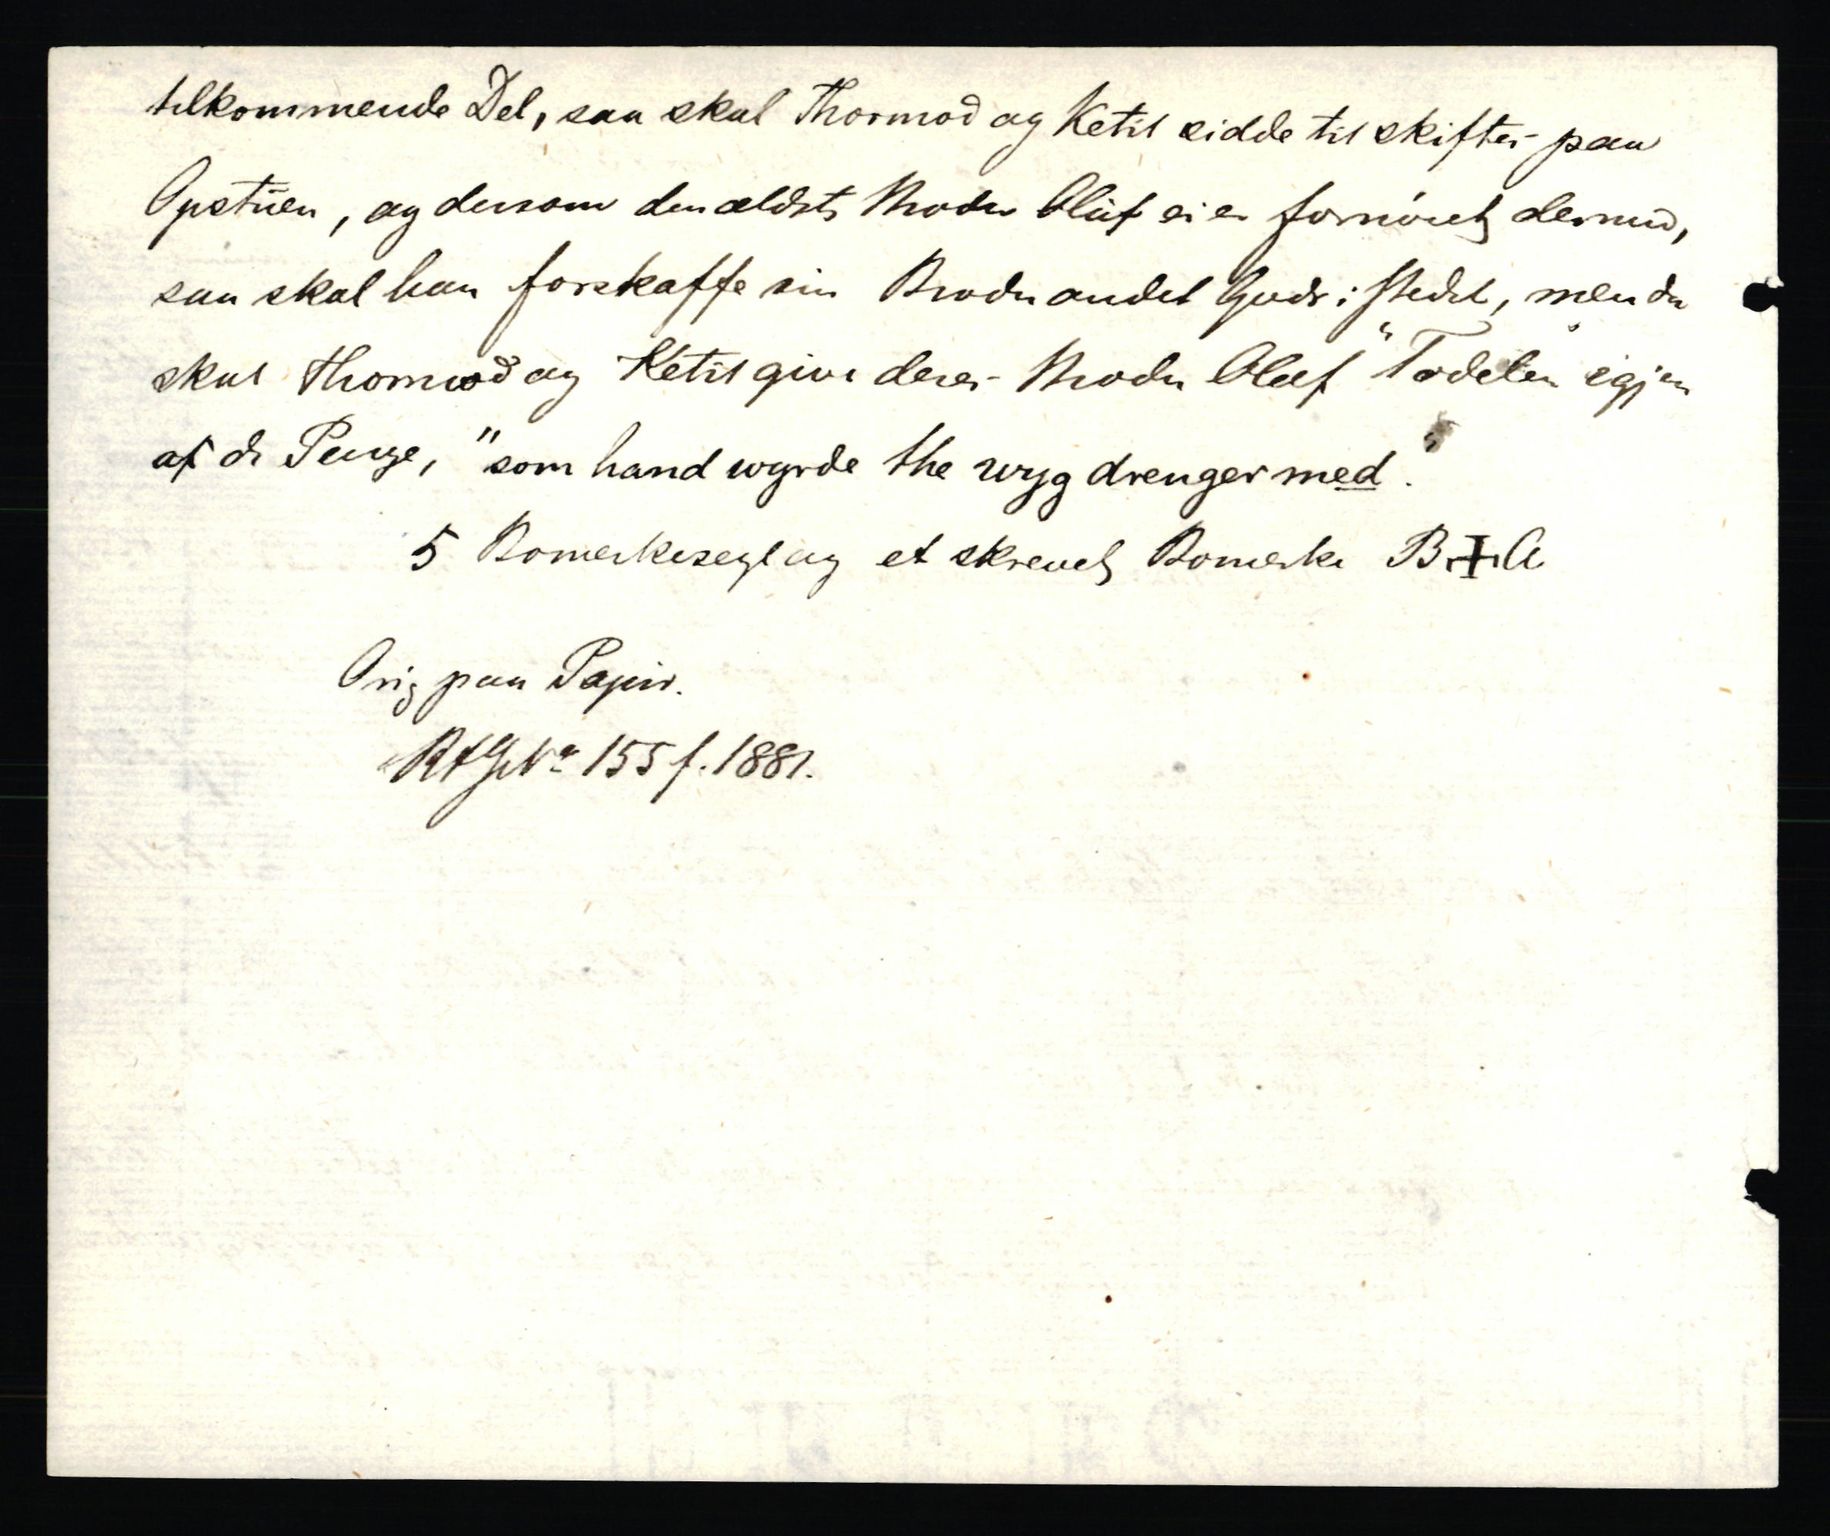 tilkommende Del, saa skal Thormod og Ketil sidde til skiftes paa
Opstuen, og dersom den ældste Broder Oluf ei er fornöiet dermed,
saa skal han forskaffe sin Broder andet Gods i Stedet, men da
skal Thormod og Ketil give deres Broder Oluf "Todelen" igjen
af de Penge, "som hand wyrde the wyg drenger med".
5 Bomerkesegl og et skrevet Bomerke B I A
Orig paa Papir.
No 155 f. 1881.